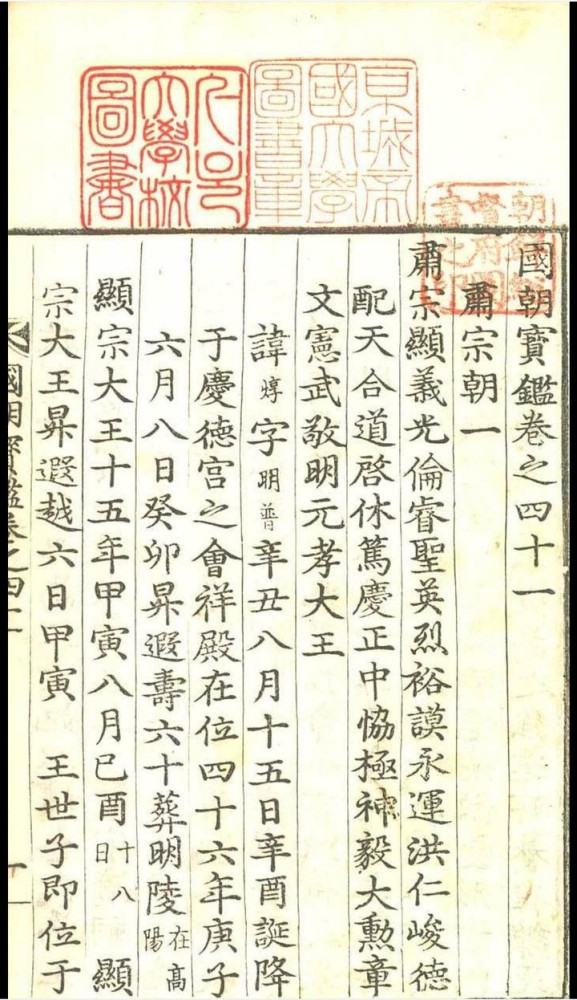 京城帝
國大學
圖書章
大學校
圖書
朝鮮總
督府圖
書之印
國朝寶鑑卷之四十一
肅宗朝一
肅宗顯義光倫睿聖英烈裕謨永運洪仁峻德
配天合道啓休篤慶正中恊極神毅大勳章
文憲武敬明元孝大王
諱焞字明普辛丑八月十五日辛酉誕降
于慶德宮之會祥殿在位四十六年庚子
六月八日癸卯昇遐壽六十葬明陵在高陽
顯宗大王十五年甲寅八月已酉十八日 顯
宗大王昇遐越六日甲寅 王世子即位于